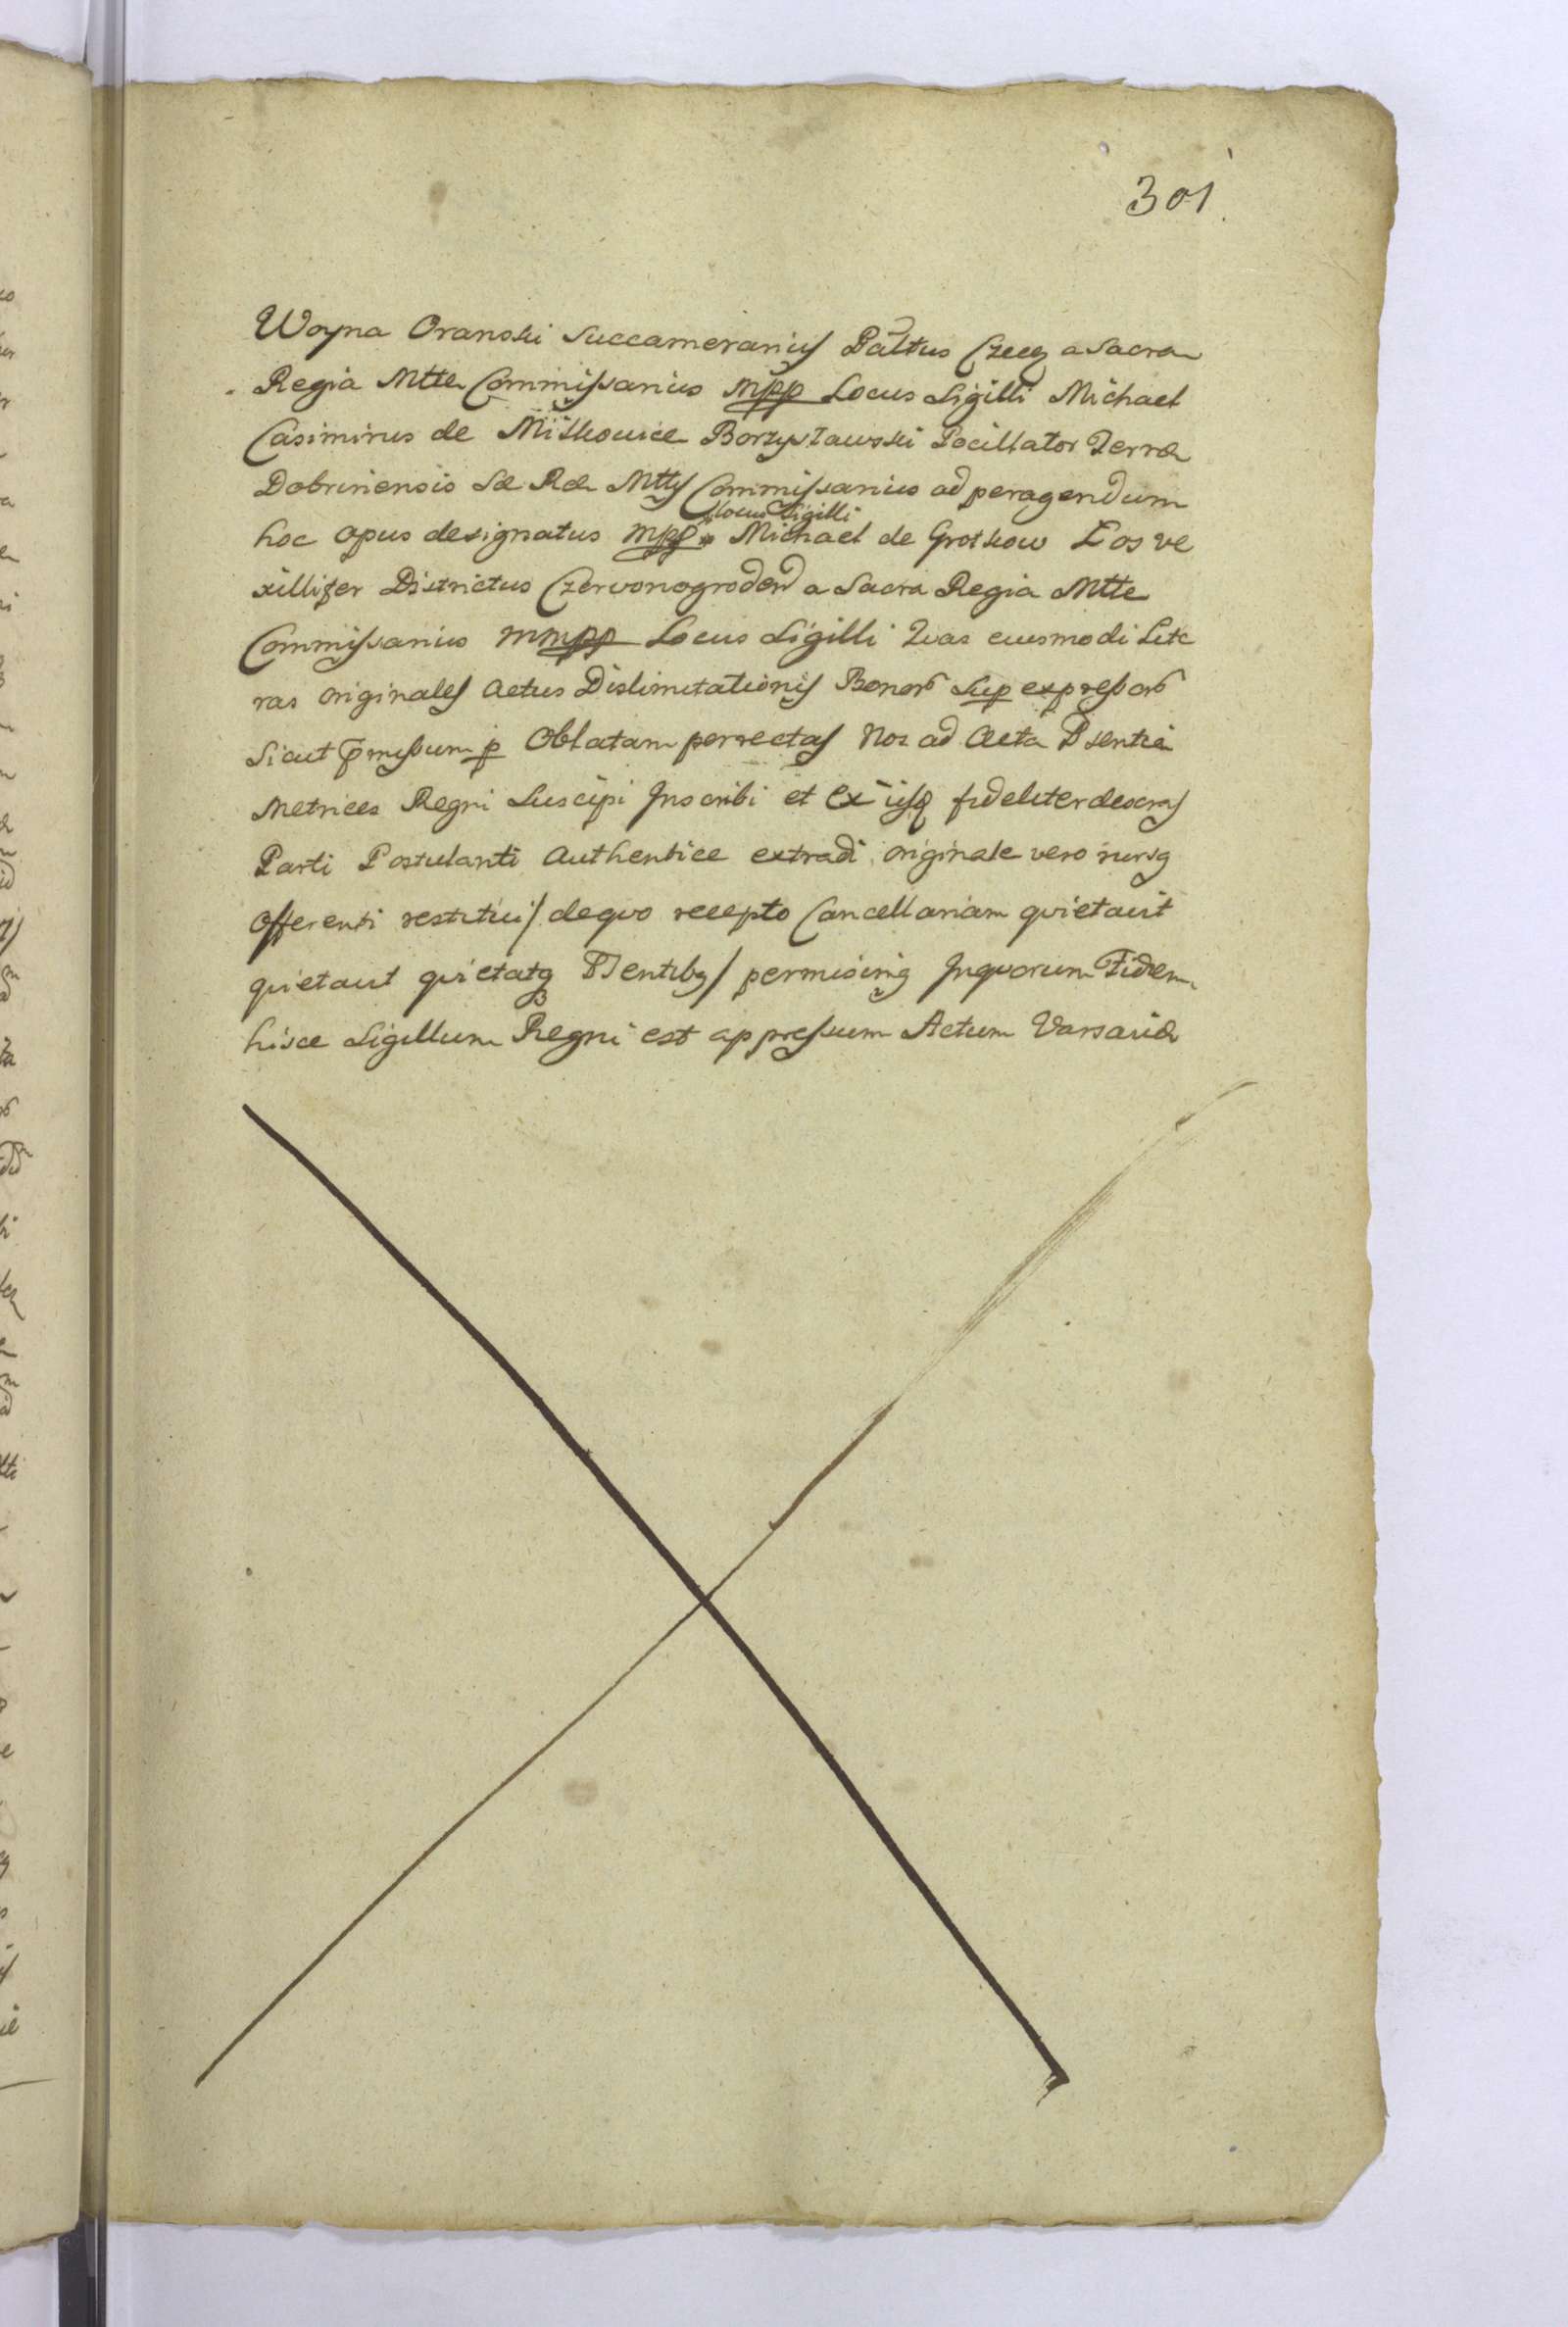 301.
Woyna Oranski Succamerarius Pāltus Czecz a Sacra
Regia Mtte Commissarius mpp Locus Sigilli Michael
Casimirus de Miłkowice Borzysławski Pocillator Terræ
Dobrinensis Sæ Ræ Mttis Commissarius ad peragendum
hoc opus designatus mpp Locus Sigilli Michael de Grotkow Łos ve
xillifer Districtus Czervonogroden a Sacra Regia Mtte
Commissarius mmpp Locus Sigilli Quas eiusmodi Lite
ras originales Actus Dislimitationis Bonor Sup expressor
Sicut pmissum p Oblatam porrectas Nos ad Acta Psentia
Metrices Regni Suscipi Inscribi et Ex iisq fideliter descras
Parti Postulanti Authentice extradi originale vero rursq
Offerenti restitui / de quo recepto Cancellariam quietavit
quietavit quietatq Psentibq / permisimq In quorum Fidem
hisce Sigillum Regni est appressum Actum Varsaviæ